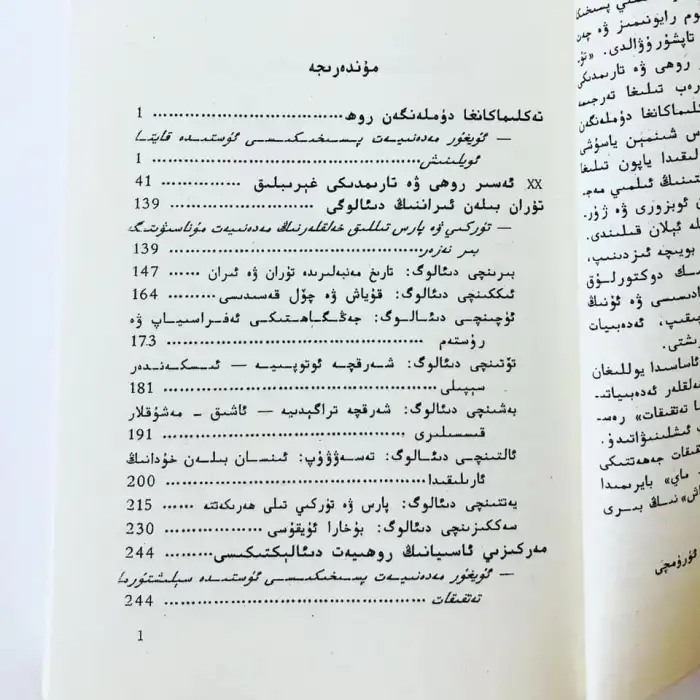 مۇندەرىجە
تەكلىماكانغا دۈملەنگەن روھ .................................... 1
— ئۇيغۇر مەدەنىيەت پىسىخىكىسى ئۈستىدە قايتا
ئويلىنىش .................................... 1
XX ئەسىر روھى ۋە تارىمدىكى غېرىبلىق ............... 41
تۇران بىلەن ئىراننىڭ دىئالوگى .................... 139
— تۈركىي ۋە پارس تىللىق خەلقلەرنىڭ مەدەنىيەت مۇناسىۋىتىگە
بىر نەزەر .................................... 139
بىرىنچى دىئالوگ: تارىخ مەنبەلىرىدە تۇران ۋە ئىران ...... 147
ئىككىنچى دىئالوگ: قۇياش ۋە چۆل قەسىدىسى .......... 164
ئۈچىنچى دىئالوگ: جەڭگاھتىكى ئەفراسىياپ ۋە
رۈستەم .................................... 173
تۆتىنچى دىئالوگ: شەرقچە ئوتوپىيە — ئىسكەندەر
سېپىلى .................................... 181
بەشىنچى دىئالوگ: شەرقچە تراگېدىيە — ئاشىق - مەشۇقلار
قىسسىلىرى .................................... 191
ئالتىنچى دىئالوگ: تەسەۋۋۇپ: ئىنسان بىلەن خۇدانىڭ
ئارىلىقىدا .................................... 200
يەتتىنچى دىئالوگ: پارس ۋە تۈركىي تىلى ھەرىكەتتە ...... 215
سەككىزىنچى دىئالوگ: بۇخارا ئۇيقۇسى ............... 230
مەركىزىي ئاسىيانىڭ روھىيەت دىئالېكتىكىسى .......... 244
— ئۇيغۇر مەدەنىيەت پىسىخىكىسى ئۈستىدە سېلىشتۇرما
تەتقىقات .................................... 244
1
پىسىخىكا
رايونىمىز ۋە
تاپشۇرۇۋالدى. «تۇ
روھى ۋە تارىمدىكى
تىلىغا تەرجىمە
تەكلىماكانغا دۈملەنگەن
شىنمېن ياسۇشى
ياپون تىلىغا
ئىلمىي
ئوبزورى ۋە ژۇر
ئېلان قىلىندى.
بويىچە ئىزدىنىپ،
دوكتورلۇق
ۋە ئۇنىڭ
ئەدەبىيات
ئاساسىدا يوللىغان
خەلقلەر ئەدەبىيات
تەتقىقات» رەس
ئىشلىنىۋاتىدۇ.
جەھەتتىكى
ماي» بايرىمىدا
نىڭ بىرى
ئۈرۈمچى